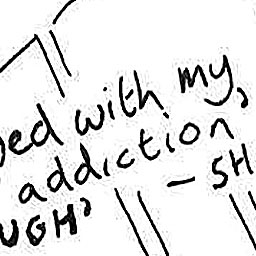 ed with my,
addiction
UGH" – SH